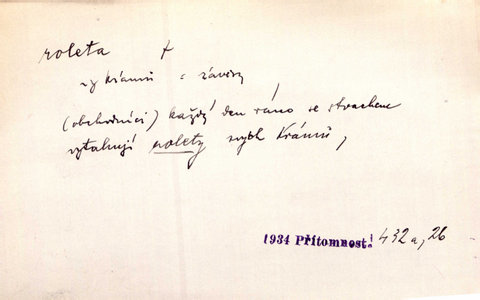 roleta f
u krámů = závěsy
(obchodníci) každý den ráno se strachem
vytahují rolety svých krámů,
1934 Přítomnost! 432a, 26